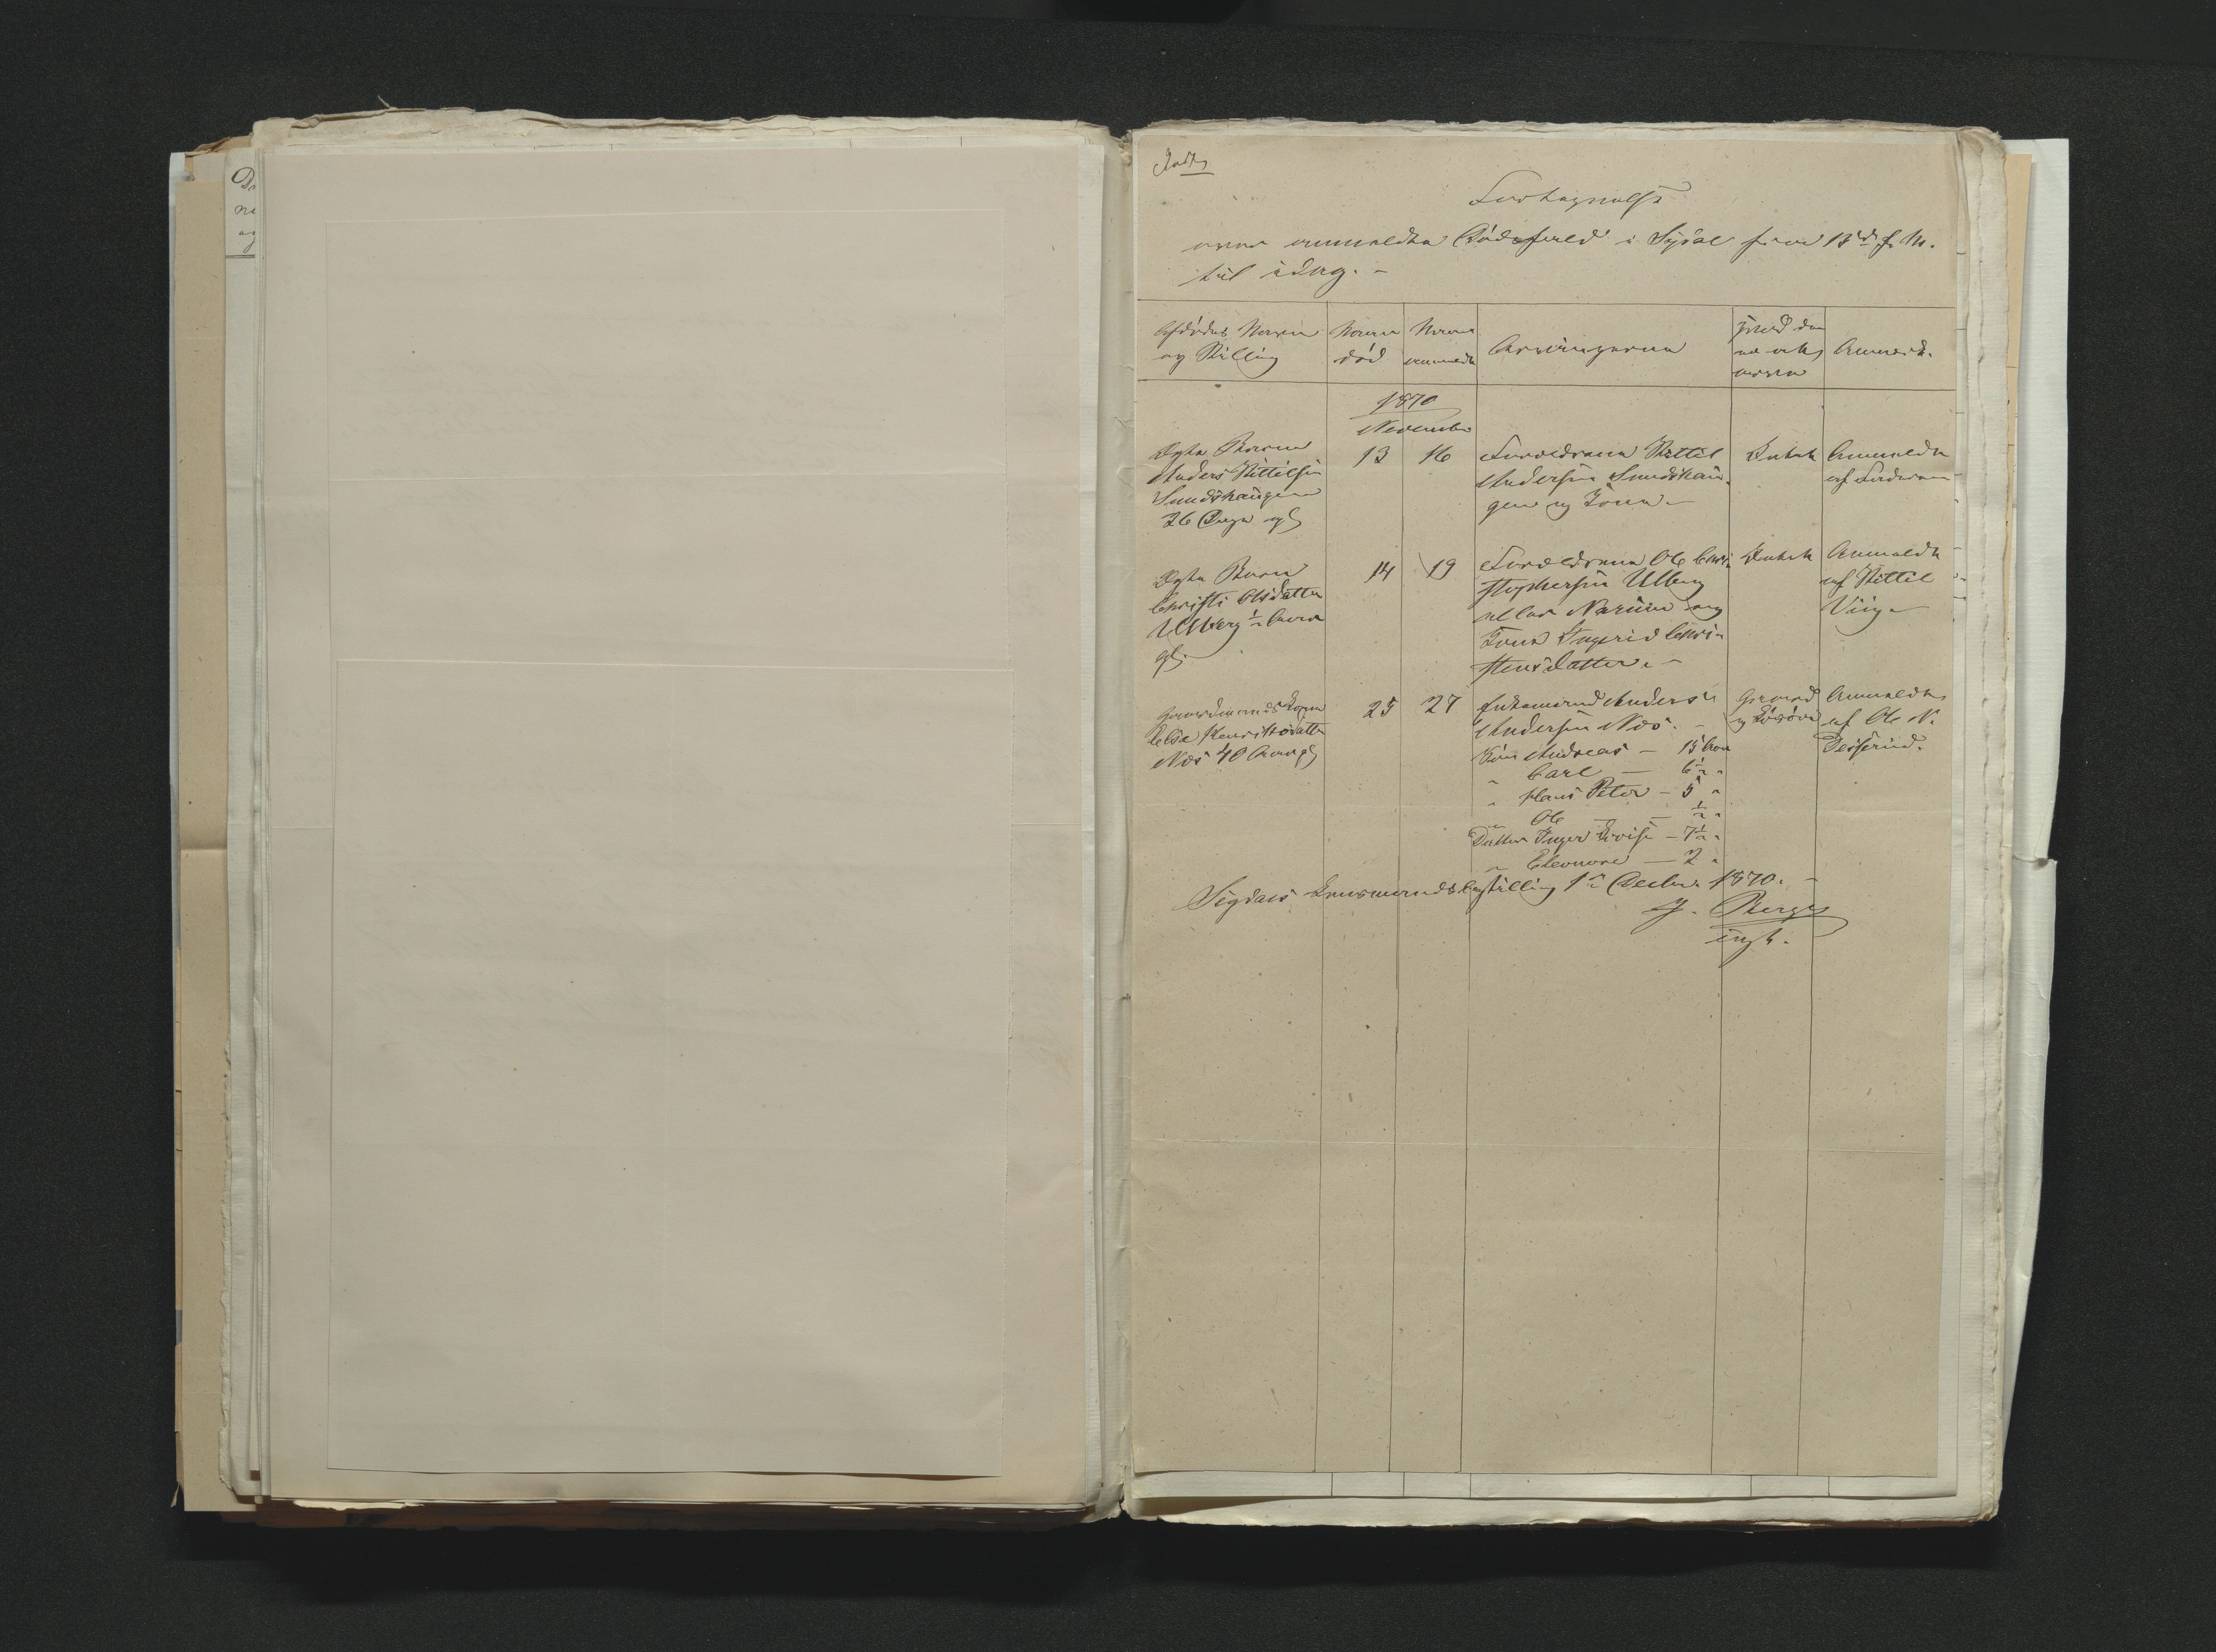 Fortegnelse
over anmeldte Dødsfald i Sigdal fra 13de f. M.
til idag. -
Afdødes Navn
og Stilling
Naar
død
Naar
anmeldt
Arvingerne
Hvad den
Anmærk.
1870
November
Ægte Barn
Anders Kittilsen
Sundshaugen
26 Dage gl.
13
16
Forældrene Kittil
Andersen Sundshau-
gen og Kone.
Intet
Anmeldt
af Faderen
Ægte Barn
Christi Olsdatter
Ulberg ½ Aar
gl.
14
19
Forældrene Ole Chri-
stophersen Ulberg
eller Narum og
Kone Ingerid Chri-
stensdatter. -
Intet
Anmeldt
af Kittil
Viig.
Gaardmandskone
Helse Henriksdatter
Næs 40 Aar gl.
25
27
Enkemand Anders
Andersen Næs. -
Søn Andreas - 15 Aar
" Carl - 6½ "
" Hans Peter - 5 "
" Ole - ½ "
Datter Inger Lovise - 7½ "
" Eleonore - 2 "
Gaard
og Løsøre
Anmeldt
af Ole N.
Sigdals Lensmandsbestilling 1ste Decbr. 1870. -
Berge